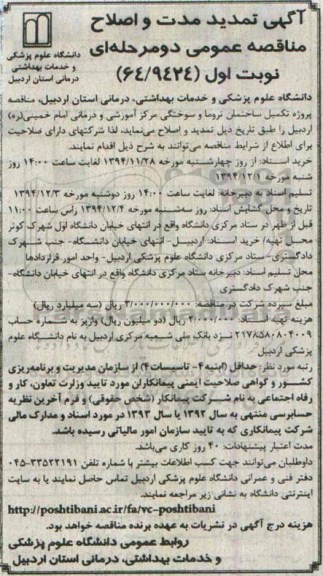 آگهی تمدید مدت و اصلاح
مناقصه عمومی دومرحله‌ای
نوبت اول (۶۴/۹۴۲۴)
دانشگاه علوم پزشکی
و خدمات بهداشتی
درمانی استان اردبیل
دانشگاه علوم پزشکی و خدمات بهداشتی، درمانی استان اردبیل، مناقصه
پروژه تکمیل ساختمان تروما و سوختگی مرکز آموزشی و درمانی امام خمینی(ره)
اردبیل را طبق تاریخ ذیل تمدید و اصلاح می‌نماید، لذا شرکتهای دارای صلاحیت
برای اطلاع از شرایط مناقصه می‌توانند به شرح ذیل اقدام نمایند.
خرید اسناد: از روز چهارشنبه مورخه ۱۳۹۴/۱۱/۲۸ لغایت ساعت ۱۴:۰۰ روز
شنبه مورخه ۱۳۹۴/۱۲/۱
تسلیم اسناد به دبیرخانه: لغایت ساعت ۱۴:۰۰ روز دوشنبه مورخه ۱۳۹۴/۱۲/۳
تاریخ و محل گشایش اسناد: روز سه‌شنبه مورخه ۱۳۹۴/۱۲/۴ راس ساعت ۱۱:۰۰
قبل از ظهر در ستاد مرکزی دانشگاه واقع در انتهای خیابان دانشگاه اول شهرک کوثر
محل تهیه/ خرید اسناد: اردبیل- انتهای خیابان دانشگاه- جنب شهرک
دادگستری- ستاد مرکزی دانشگاه علوم پزشکی اردبیل- واحد امور قراردادها
محل تسلیم اسناد: دبیرخانه ستاد مرکزی دانشگاه واقع در انتهای خیابان دانشگاه-
جنب شهرک دادگستری
مبلغ سپرده شرکت در مناقصه: ۳/۰۰۰/۰۰۰/۰۰۰ ریال (سه میلیارد ریال)
هزینه خرید اسناد ۲/۰۰۰/۰۰۰ ریال (دو میلیون ریال) واریز به شماره حساب
۲۱۷۸۵۸۰۸۰۴۰۰۹ نزد بانک ملی شعبه مرکزی اردبیل به نام دانشگاه علوم
پزشکی اردبیل
رتبه مورد نظر: حداقل (ابنیه ۴- تاسیسات ۴) از سازمان مدیریت و برنامه‌ریزی
کشور و گواهی صلاحیت ایمنی پیمانکاران مورد تایید وزارت تعاون، کار و
رفاه اجتماعی به نام شرکت پیمانکار (شخص حقوقی) و فرم آخرین نظریه
حسابرسی منتهی به سال ۱۳۹۲ یا سال ۱۳۹۳ در مورد اسناد و مدارک مالی
شرکت پیمانکاری که به تایید سازمان امور مالیاتی رسیده باشد.
مدت اعتبار پیشنهادات: ۴۰ روز کاری می‌باشد.
داوطلبان می‌توانند جهت کسب اطلاعات بیشتر با شماره تلفن ۳۳۵۲۲۱۹۱-۰۴۵
دفتر فنی و عمرانی دانشگاه علوم پزشکی اردبیل تماس حاصل نمایند یا به سایت
اینترنتی دانشگاه به نشانی زیر مراجعه نمایند.
http://poshtibani.ac.ir/fa/vc-poshtibani
هزینه درج آگهی در نشریات به عهده برنده مناقصه خواهد بود.
روابط عمومی دانشگاه علوم پزشکی
و خدمات بهداشتی، درمانی استان اردبیل